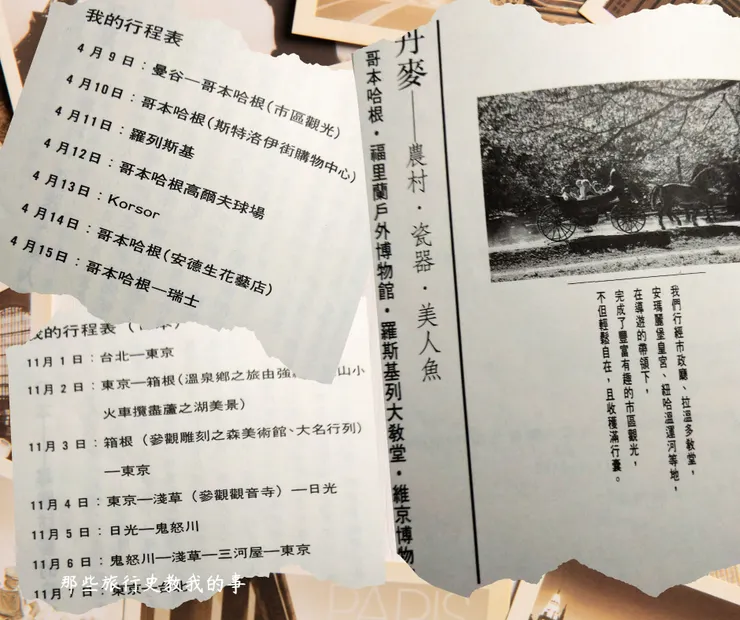 我的行程表
4月9日：曼谷—哥本哈根(市區觀光)
4月10日：哥本哈根(斯特洛伊街購物中心)
4月11日：羅列斯基
4月12日：哥本哈根高爾夫球場
4月13日：Korsor
4月14日：哥本哈根(安德生花藝店)
4月15日：哥本哈根—瑞士
我的行程表（
11月1日：台北—東京
11月2日：東京—箱根(溫泉鄉之旅由強 山小
火車攬盡蘆之湖美景)
11月3日：箱根（參觀雕刻之森美術館、大名行列)
—東京
11月4日：東京—淺草（參觀觀音寺）—日光
11月5日：日光—鬼怒川
11月6日：鬼怒川—淺草—三河屋—東京
11月7日：東京
那些旅行史教我的事
丹麥——農村・瓷器・美人魚
哥本哈根・福里蘭戶外博物館・羅斯基列大教堂・維京博物
我們行經市政廳、拉溫多教堂，
安瑪麗堡皇宮、紐哈溫運河等地，
在導遊的帶領下，
完成了豐富有趣的市區觀光，
不但輕鬆自在，且收穫滿行囊。
PARIS